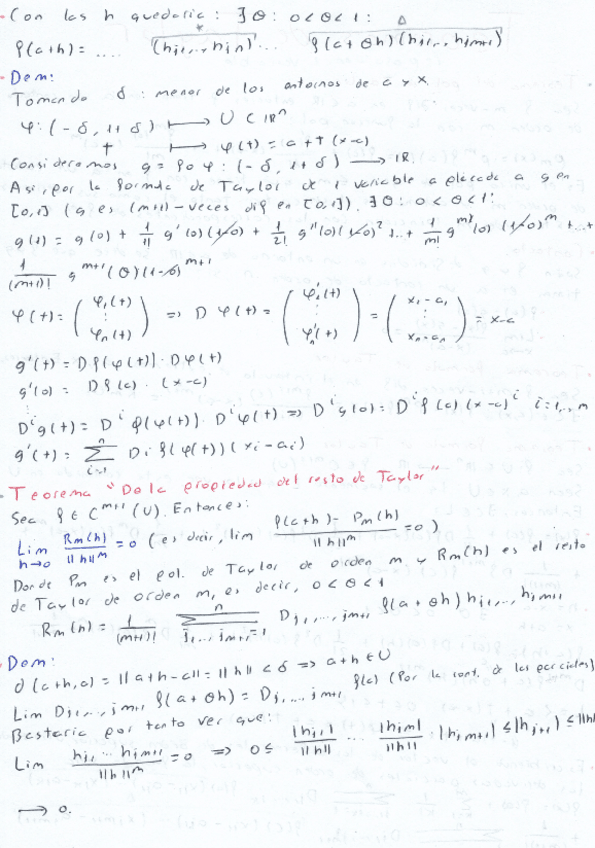 - Con las h quedaría: ∃ θ: 0<θ<1:
f(a+h) = .... (hj1,.., hjn)* ... f(a+θh)(hj1..., hjm+1) Δ
- Dem:
Tomando δ: menor de los entornos de a y x.
φ: (-δ, 1+δ) ⟼ U ⊂ ℝⁿ
t ⟼ φ(t) = a + t(x-a)
Consideramos g = f∘φ: (-δ, 1+δ) ⟶ ℝ.
Así, por la formula de Taylor de 1 variable aplicada a g en
[0,1] (g es (m+1) veces dif en [0,1]). ∃ θ: 0<θ<1:
g(1) = g(0) + 1/1! g'(0)(1-0) + 1/2! g''(0)(1-0)² +..+ 1/m! g^m)(0)(1-0)^m +..+
1/(m+1)! g^m+1(θ)(1-0)^m+1
φ(t) = (φ1(t) ⋮ φn(t)) ⇒ D φ(t) = (φ1'(t) ⋮ φn'(t)) = (x1-a1 ⋮ xn-an) = x-a
g'(t) = Df(φ(t)) · Dφ(t)
g'(0) = Df(a) · (x-a)
⋮
D^i g(t) = D^i f(φ(t)) · D^i φ(t) ⇒ D^i g(0) = D^i f(a)(x-a)^i i=1,..,m
g'(t) = Σ_{i=1}^{n} Di f(φ(t))(xi-ai)
- Teorema "De la propiedad del resto de Taylor"
Sea f ∈ C^m+1(U). Entonces:
Lim_{h→0} Rm(h)/||h||^m = 0 (es decir, lim f(a+h) - Pm(h)/||h||^m = 0)
Donde Pm es el pol. de Taylor de orden m y Rm(h) es el resto
de Taylor de orden m, es decir, 0<θ<1
Rm(h) = 1/(m+1)! Σ_{j1,..jm+1=1}^{n} Dj1,...,jm+1 f(a+θh) hj1,.., hjm+1
- Dem:
d(a+h,a) = ||a+h-a|| = ||h|| < δ ⇒ a+h ∈ U
Lim Dj1,..., jm+1 f(a+θh) = Dj1,..., jm+1 f(a) (Por la cont. de las parciales)
Bastaría por tanto ver que:
Lim hj1...hjm+1/||h||^m = 0 ⇒ 0≤ |hj1|/||h|| ... |hjm|/||h|| · |hjm+1| ≤ |hjm+1| ≤ ||h||
⟶ 0.